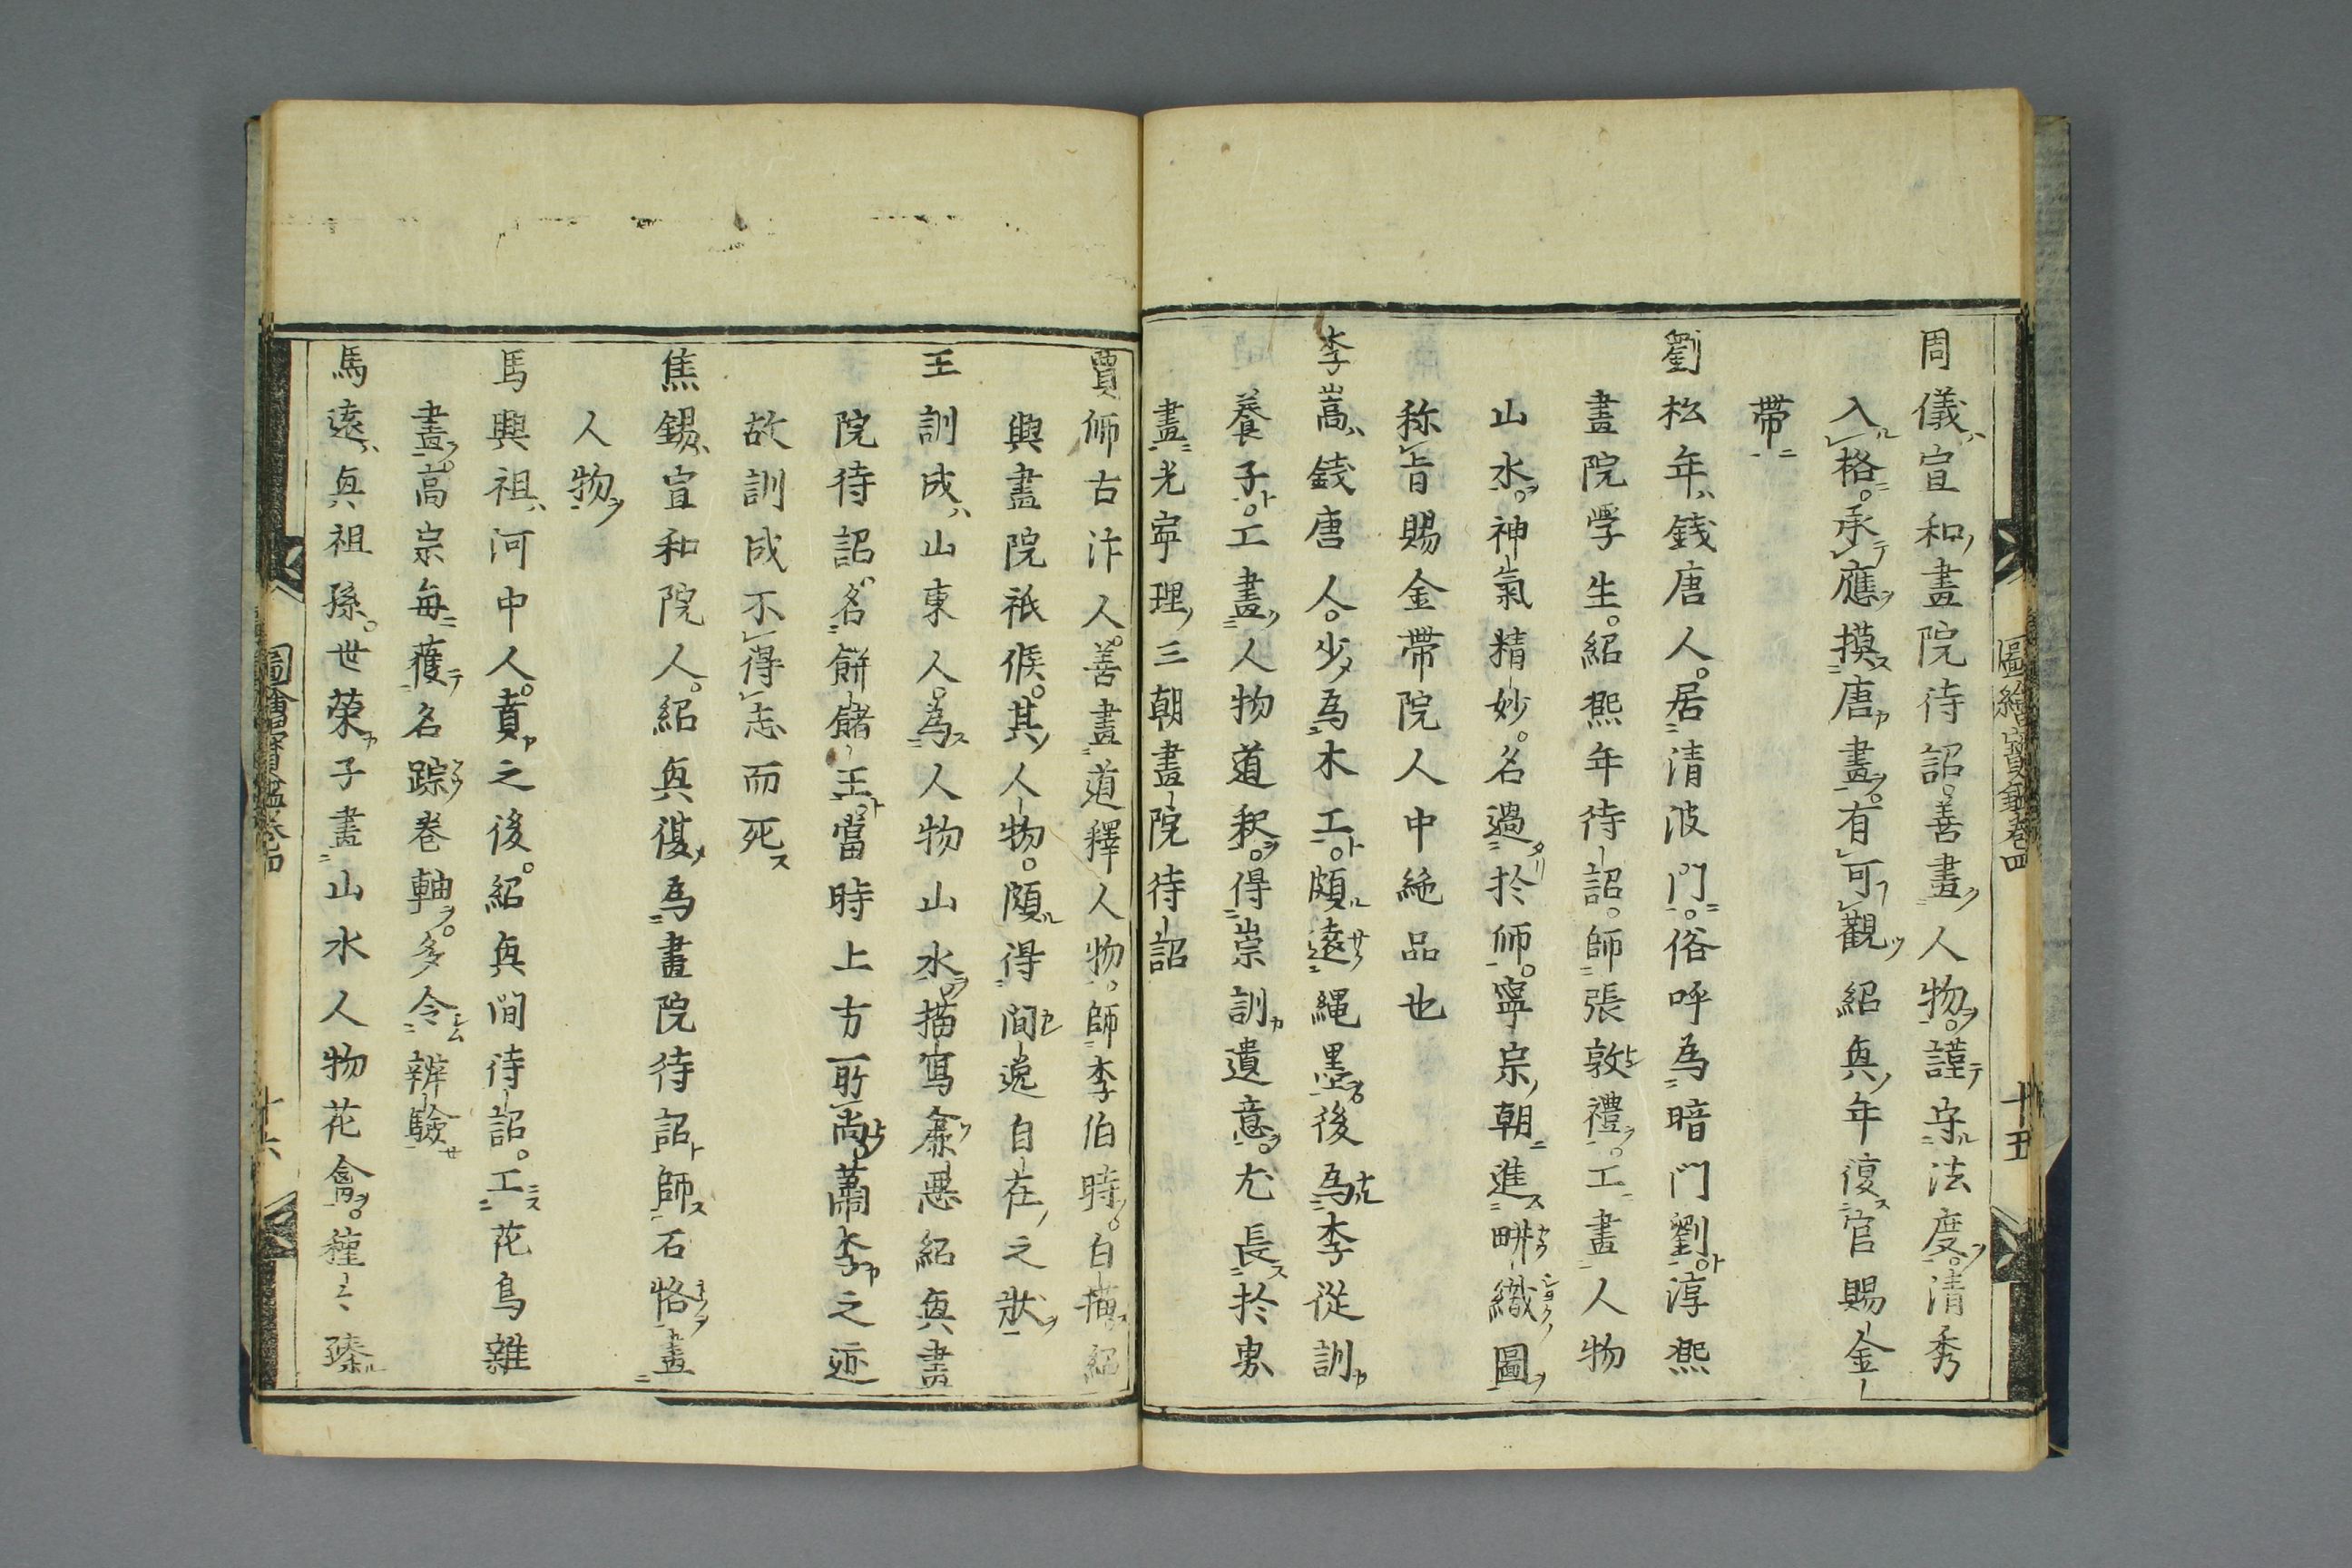 圖繪寶鑑卷四 十五
周儀宣和畫院待詔善畫人物謹守法度清秀
入格承應摸唐畫有可觀紹興年復官賜金
帶
劉松年錢唐人居清波門俗呼為暗門劉淳熙
畫院學生紹熙年待詔師張敦禮工畫人物
山水神氣精妙名過於師寧宗朝進畊織圖
称旨賜金帶院人中絶品也
李嵩錢唐人少為木工頗遠繩墨後為李從訓
養子工畫人物道釈得崇訓遺意尤長於界
畫光寧理三朝畫院待詔
賈師古汴人善畫道釋人物師李伯時白描紹
興畫院祇候其人物頗得間逸自在之狀
王訓成山東人為人物山水描寫麄惡紹興畫
院待詔名餅儲王當時上方所尚蕭李之迹
故訓成不得志而死
焦錫宣和院人紹興復為畫院待詔師石恪畫
人物
馬興祖河中人賁之後紹興間待詔工花鳥雜
畫高宗每獲名踪卷軸多令辨驗
馬遠興祖孫世榮子畫山水人物花禽種〻臻
圖繪寶鑑卷四 十六